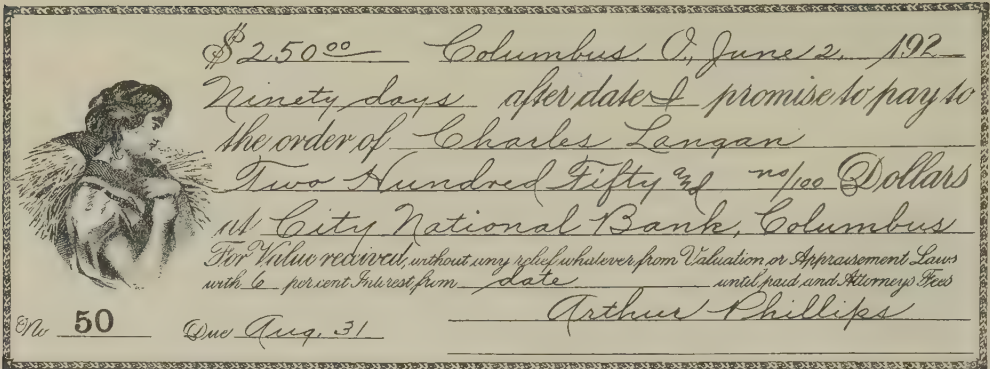 $250 00 Columbus, O., June 2, 192
Ninety days after date I promise to pay to
the order of Charles Langan
Two Hundred Fifty and no/100 Dollars
at City National Bank, Columbus
For Value received, without any relief whatever from Valuation or Appraisement Laws
with 6 per cent Interest from date until paid and Attorneys Fees
Arthur Phillips
No 50 Due Aug. 31